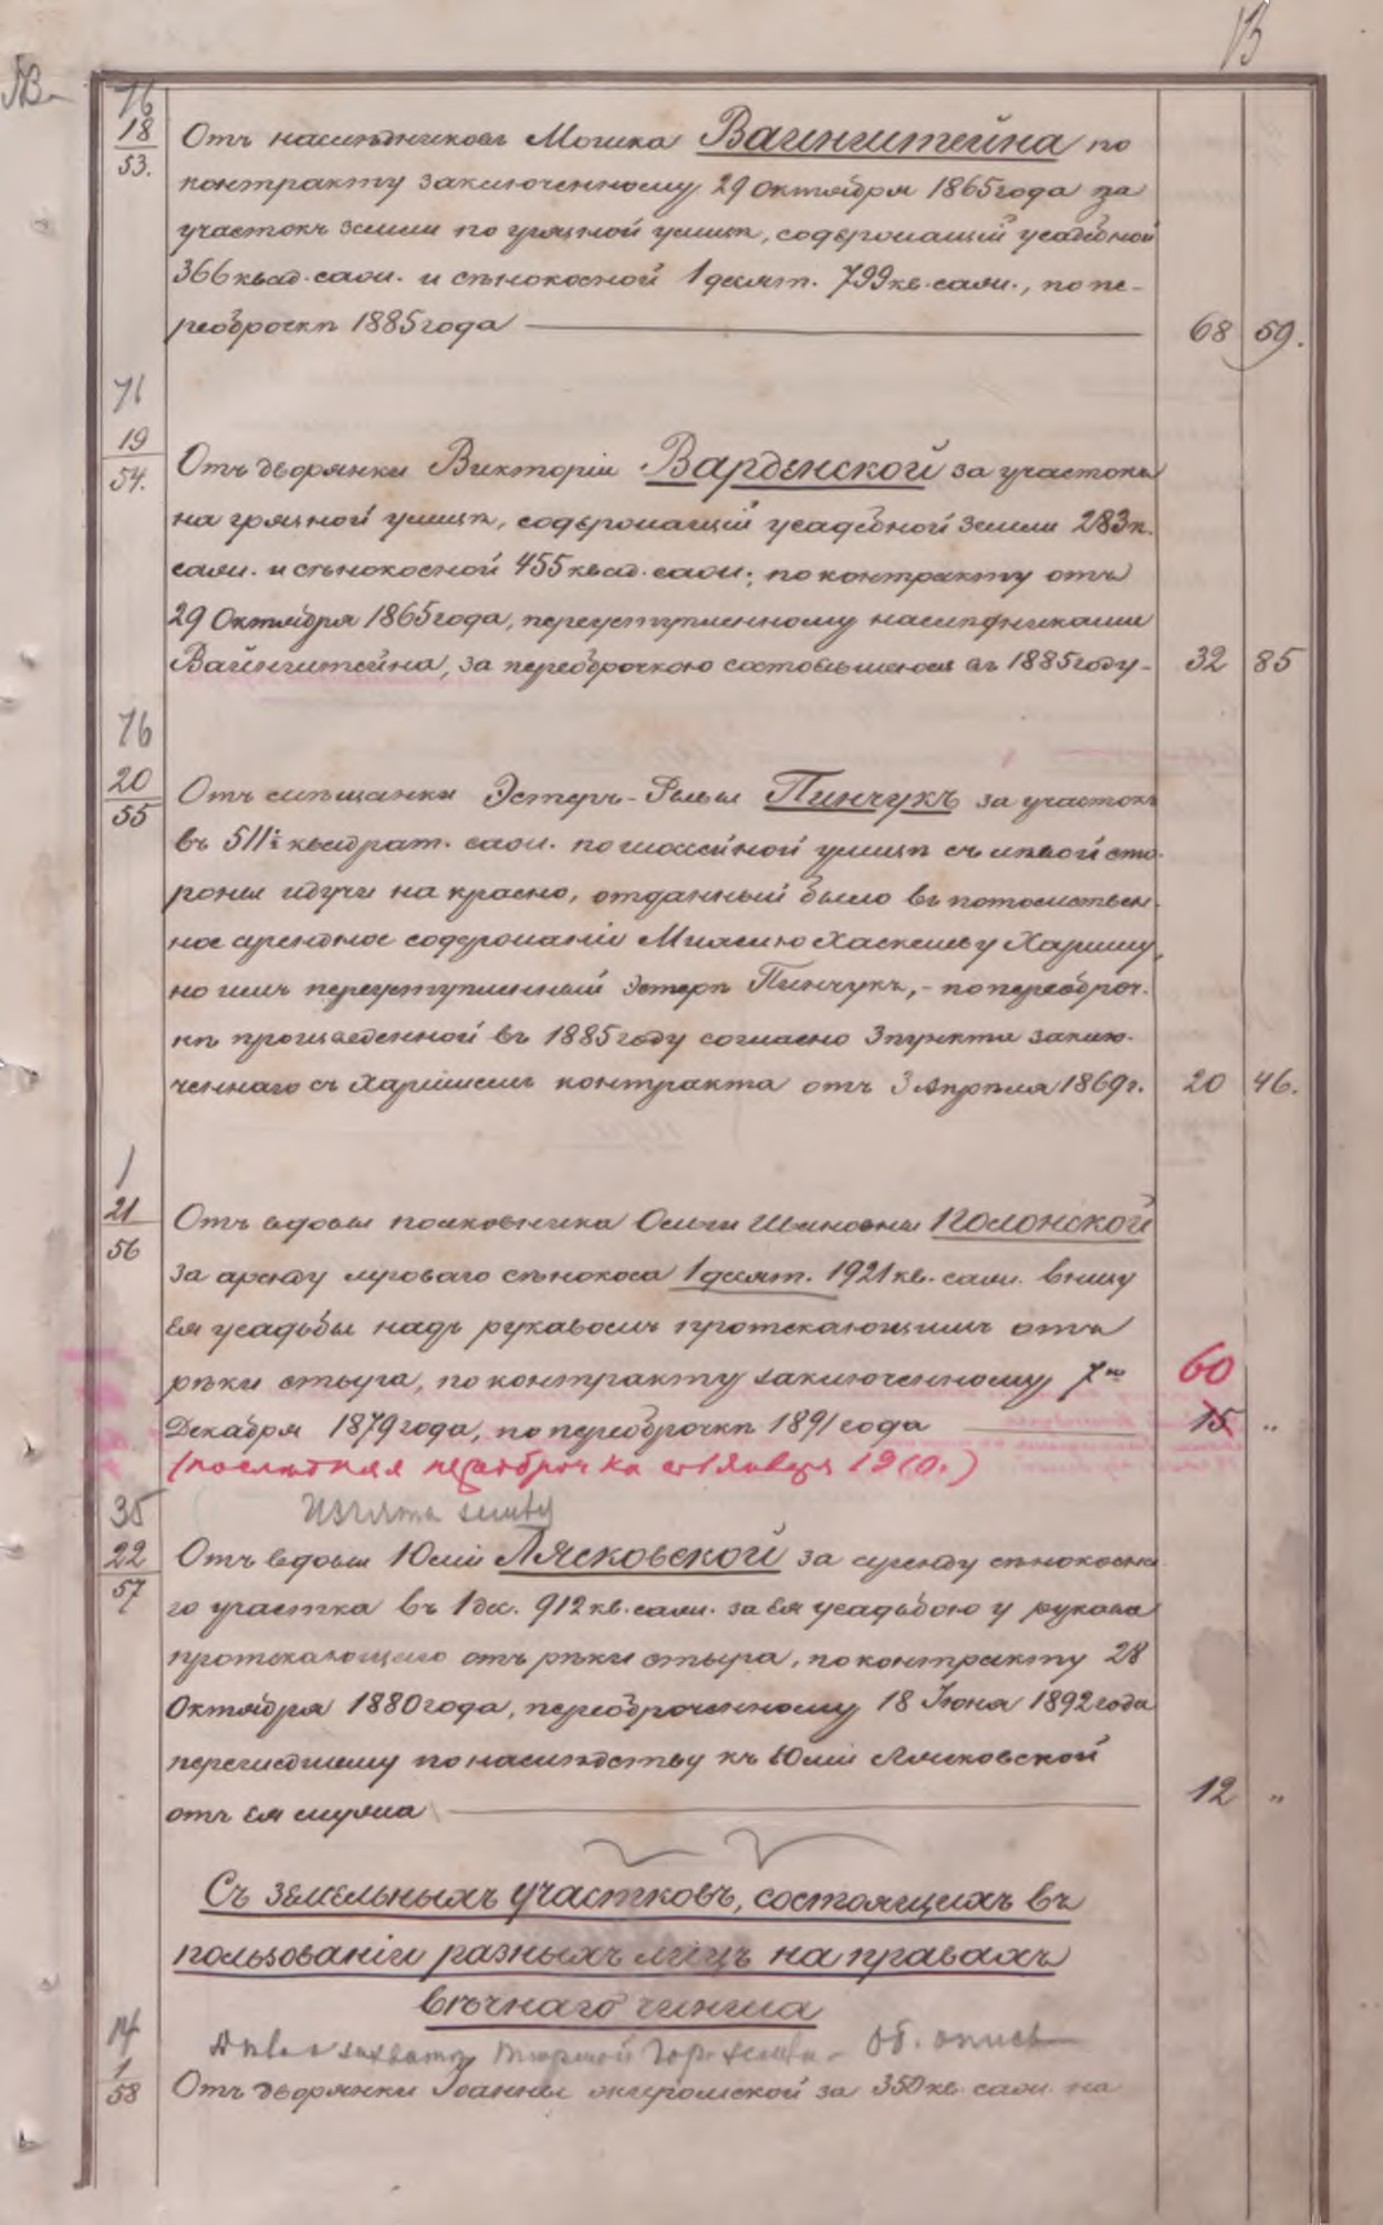 13
76
18
53.
Отъ наслѣдниковъ Мошка Вайнштейна по
контракту заключенному 29 Октября 1865 года за
участокъ земли по грязной улицѣ, содержащій усадебной
366 квад. саж. и сѣнокосной 1 десят. 799 кв. саж., по пе-
реоброчкѣ 1885 года
68 59.
71
19
54.
Отъ дворянки Викторіи Варденской за участокъ
на грязной улицѣ, содержащій усадебной земли 283 к.
саж. и сѣнокосной 455 квад. саж., по контракту отъ
29 Октября 1865 года, переуступленному наслѣдниками
Вайнштейна, за переоброчкою состоявшеюся въ 1885 году-
32 85
76
20
55
Отъ мѣщанки Эстеръ- Пинчукъ за участокъ
въ 511½ квадрат. саж. по шоссейной улицѣ съ лѣвой сто-
роны идучи на красно, отданный было въ потомствен-
ное арендное содержаніе Хаскелеву
но имъ переуступленный Эстеръ Пинчукъ,- по переоброч-
кѣ произведенной въ 1885 году согласно 3 пункта заклю-
ченнаго съ контракта отъ 3 Апрѣля 1869 г.
20 46.
1
21
56
Отъ вдовы полковника Ольги Ивановны Полонской
за аренду луговаго сѣнокоса 1 десят. 1921 кв. саж. внизу
ея усадьбы надъ рукавомъ протекающимъ отъ
рѣки стыра, по контракту заключенному 7го
Декабря 1879 года, по переоброчкѣ 1891 года
60
15 "
(послѣдняя переоброчка съ 1 Января 1910.)
35
22
57
Изъята
Отъ вдовы Юліи Лясковской за аренду сѣнокосна-
го участка въ 1 дес. 912 кв. саж. за ея усадьбою у рукава
протекающего отъ рѣки стыра, по контракту 28
Октября 1880 года, переоброченному 18 Іюня 1892 года
перешедшему по наслѣдству къ Юліи Лясковской
отъ ея мужа
12 "
Съ земельныхъ участковъ, состоящихъ въ
пользованіи разныхъ лицъ на правахъ
вѣчнаго чинша
14
1
58
Дѣло Об. опись
Отъ дворянки Іоанны за 350 кв. саж. на